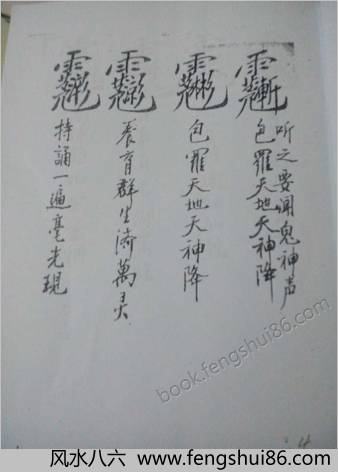 听之要闻鬼神声
包羅天地天神降
包羅天地天神降
养育群生济萬灵
持誦一遍毫光現
book.fengshui86.com
风水八六 www.fengshui86.com